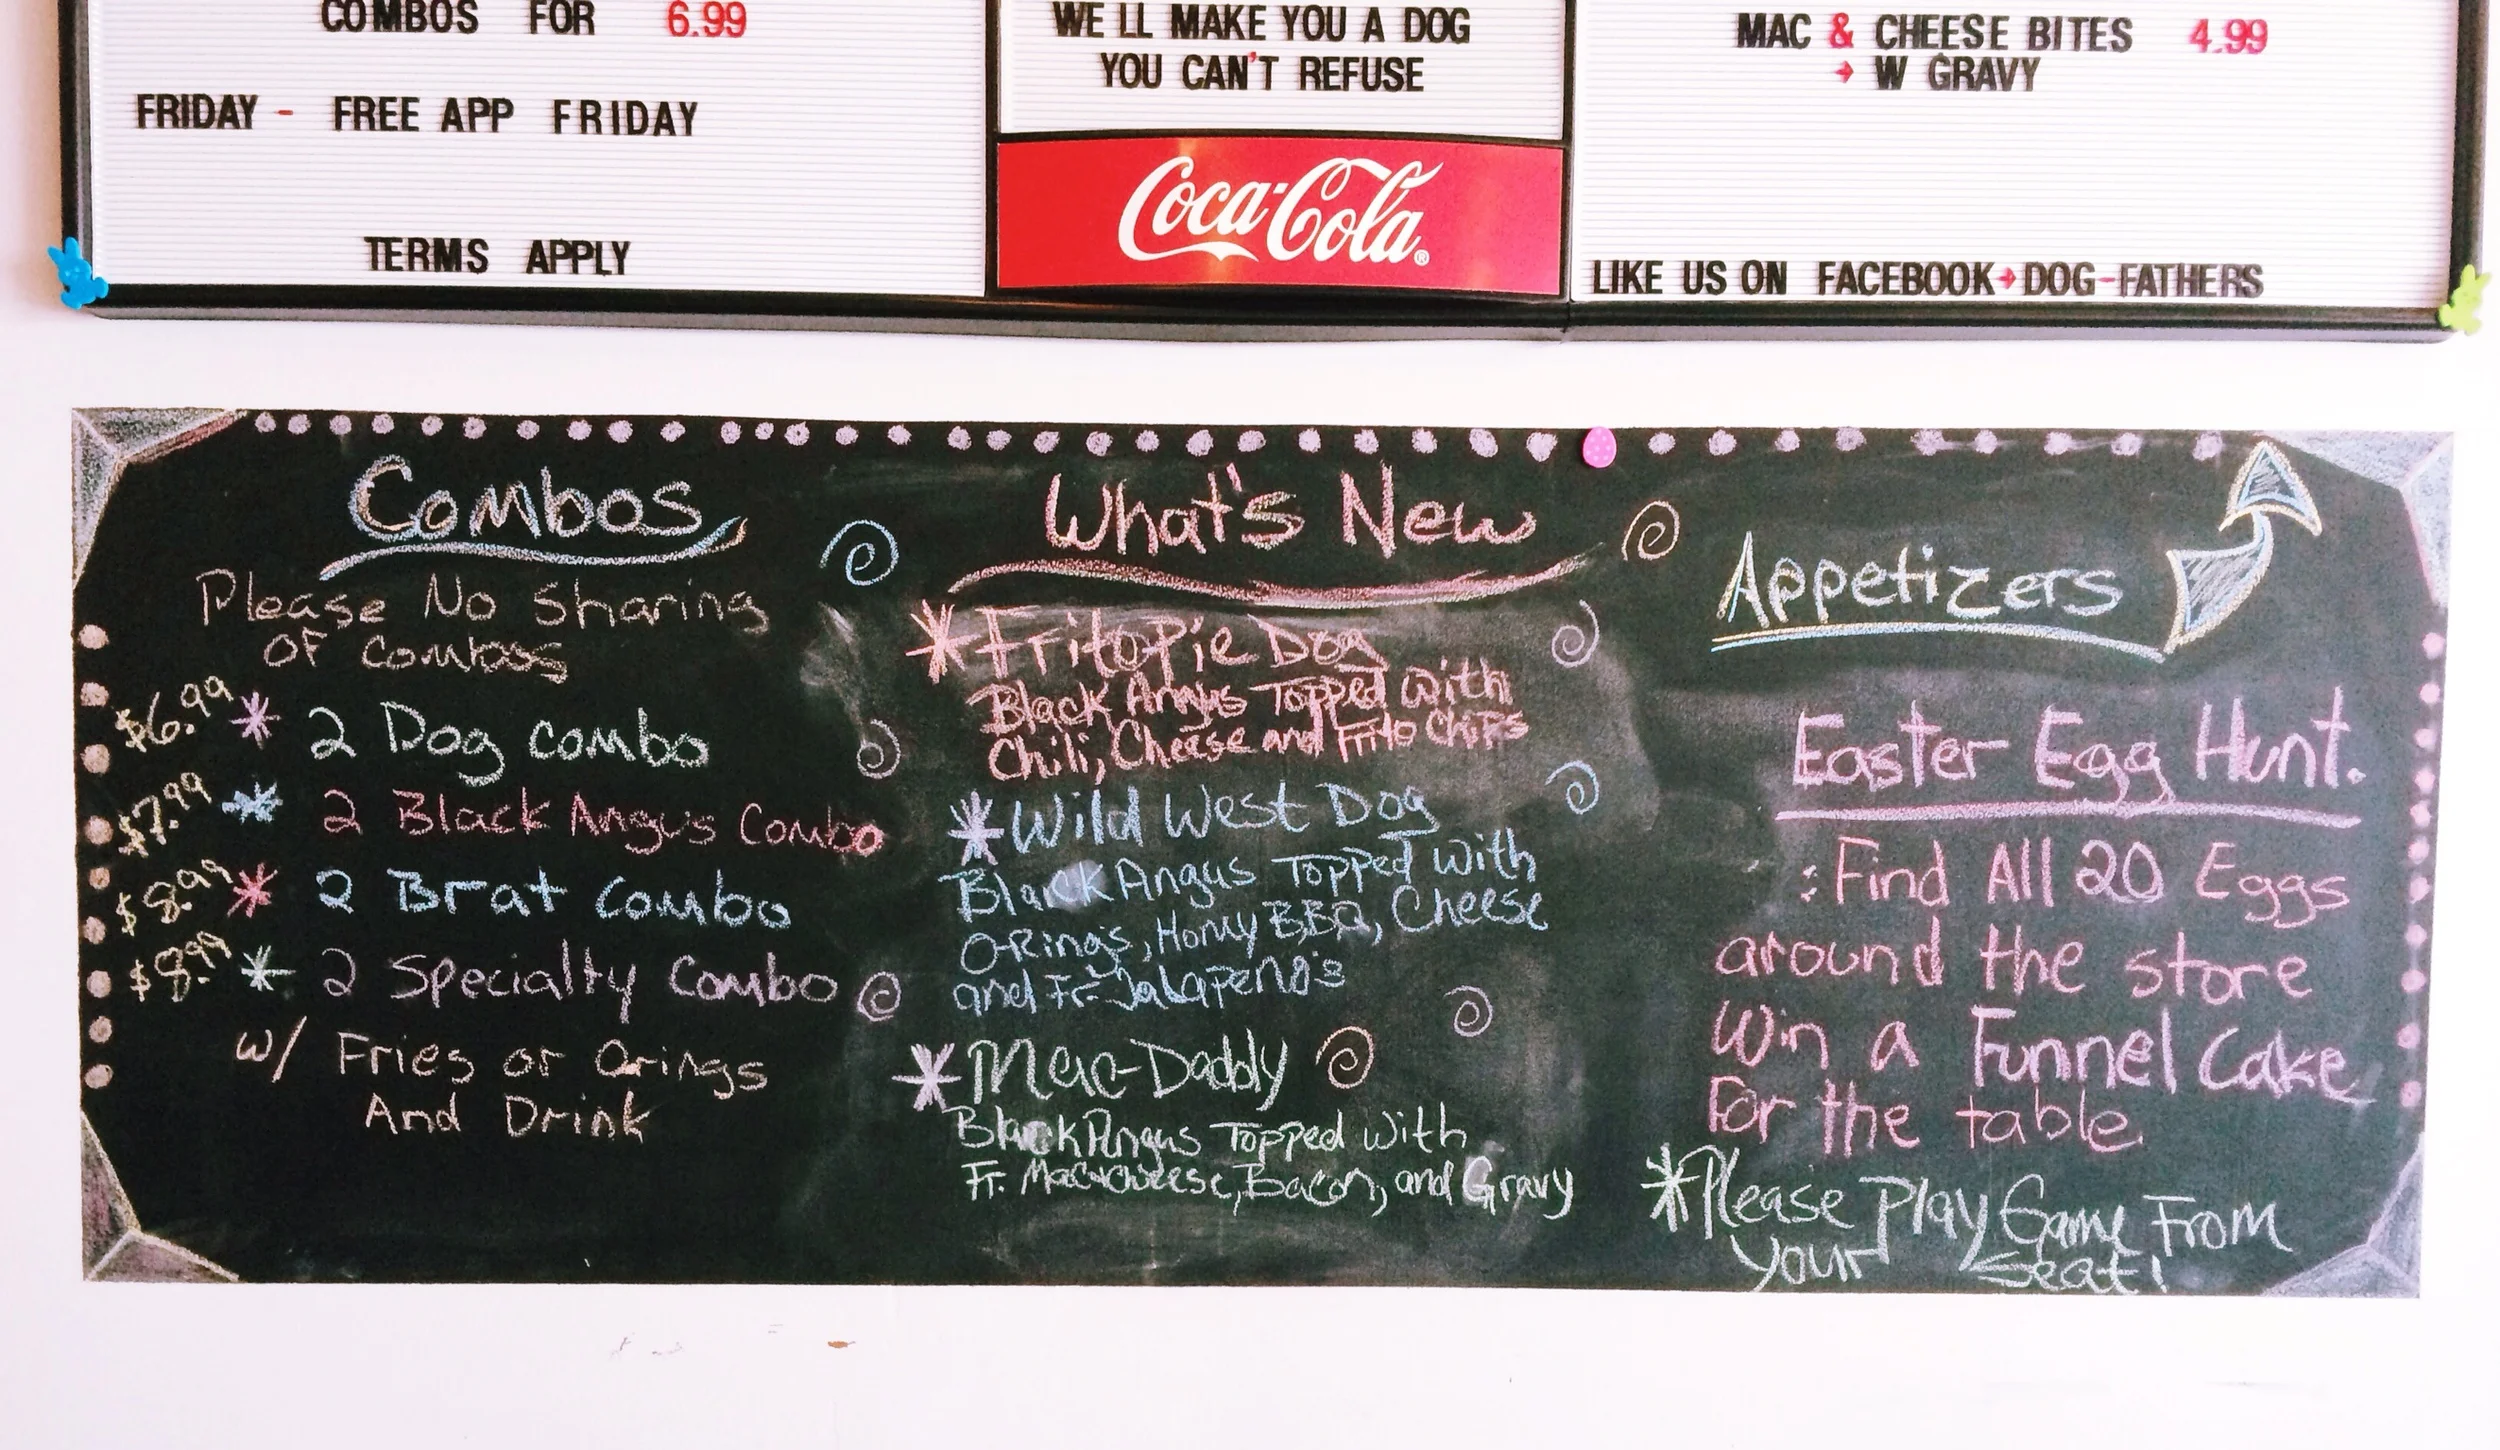 COMBOS FOR 6.99
FRIDAY - FREE APP FRIDAY
TERMS APPLY
WE LL MAKE YOU A DOG
YOU CAN'T REFUSE
Coca-Cola®
MAC & CHEESE BITES 4.99
→ W GRAVY
LIKE US ON FACEBOOK→DOG-FATHERS
Combos
Please No Sharing
OF Combos
$6.99 * 2 Dog combo
$7.99 * 2 Black Angus Combo
$8.99 * 2 Brat Combo
$8.99 * 2 Specialty Combo
w/ Fries or Orings
And Drink
What's New
* Frito Pie Dog
Black Angus Topped with
Chili, Cheese and Frito Chips
* Wild West Dog
Black Angus Topped with
O-Rings, Honey BBQ, Cheese
and Fr. Jalapeno's
* Mac-Daddy
Black Angus Topped with
Fr. Mac&cheese, Bacon, and Gravy
Appetizers
Easter Egg Hunt.
: Find All 20 Eggs
around the store
Win a Funnel Cake
For the table
* Please Play Game From
your Seat!